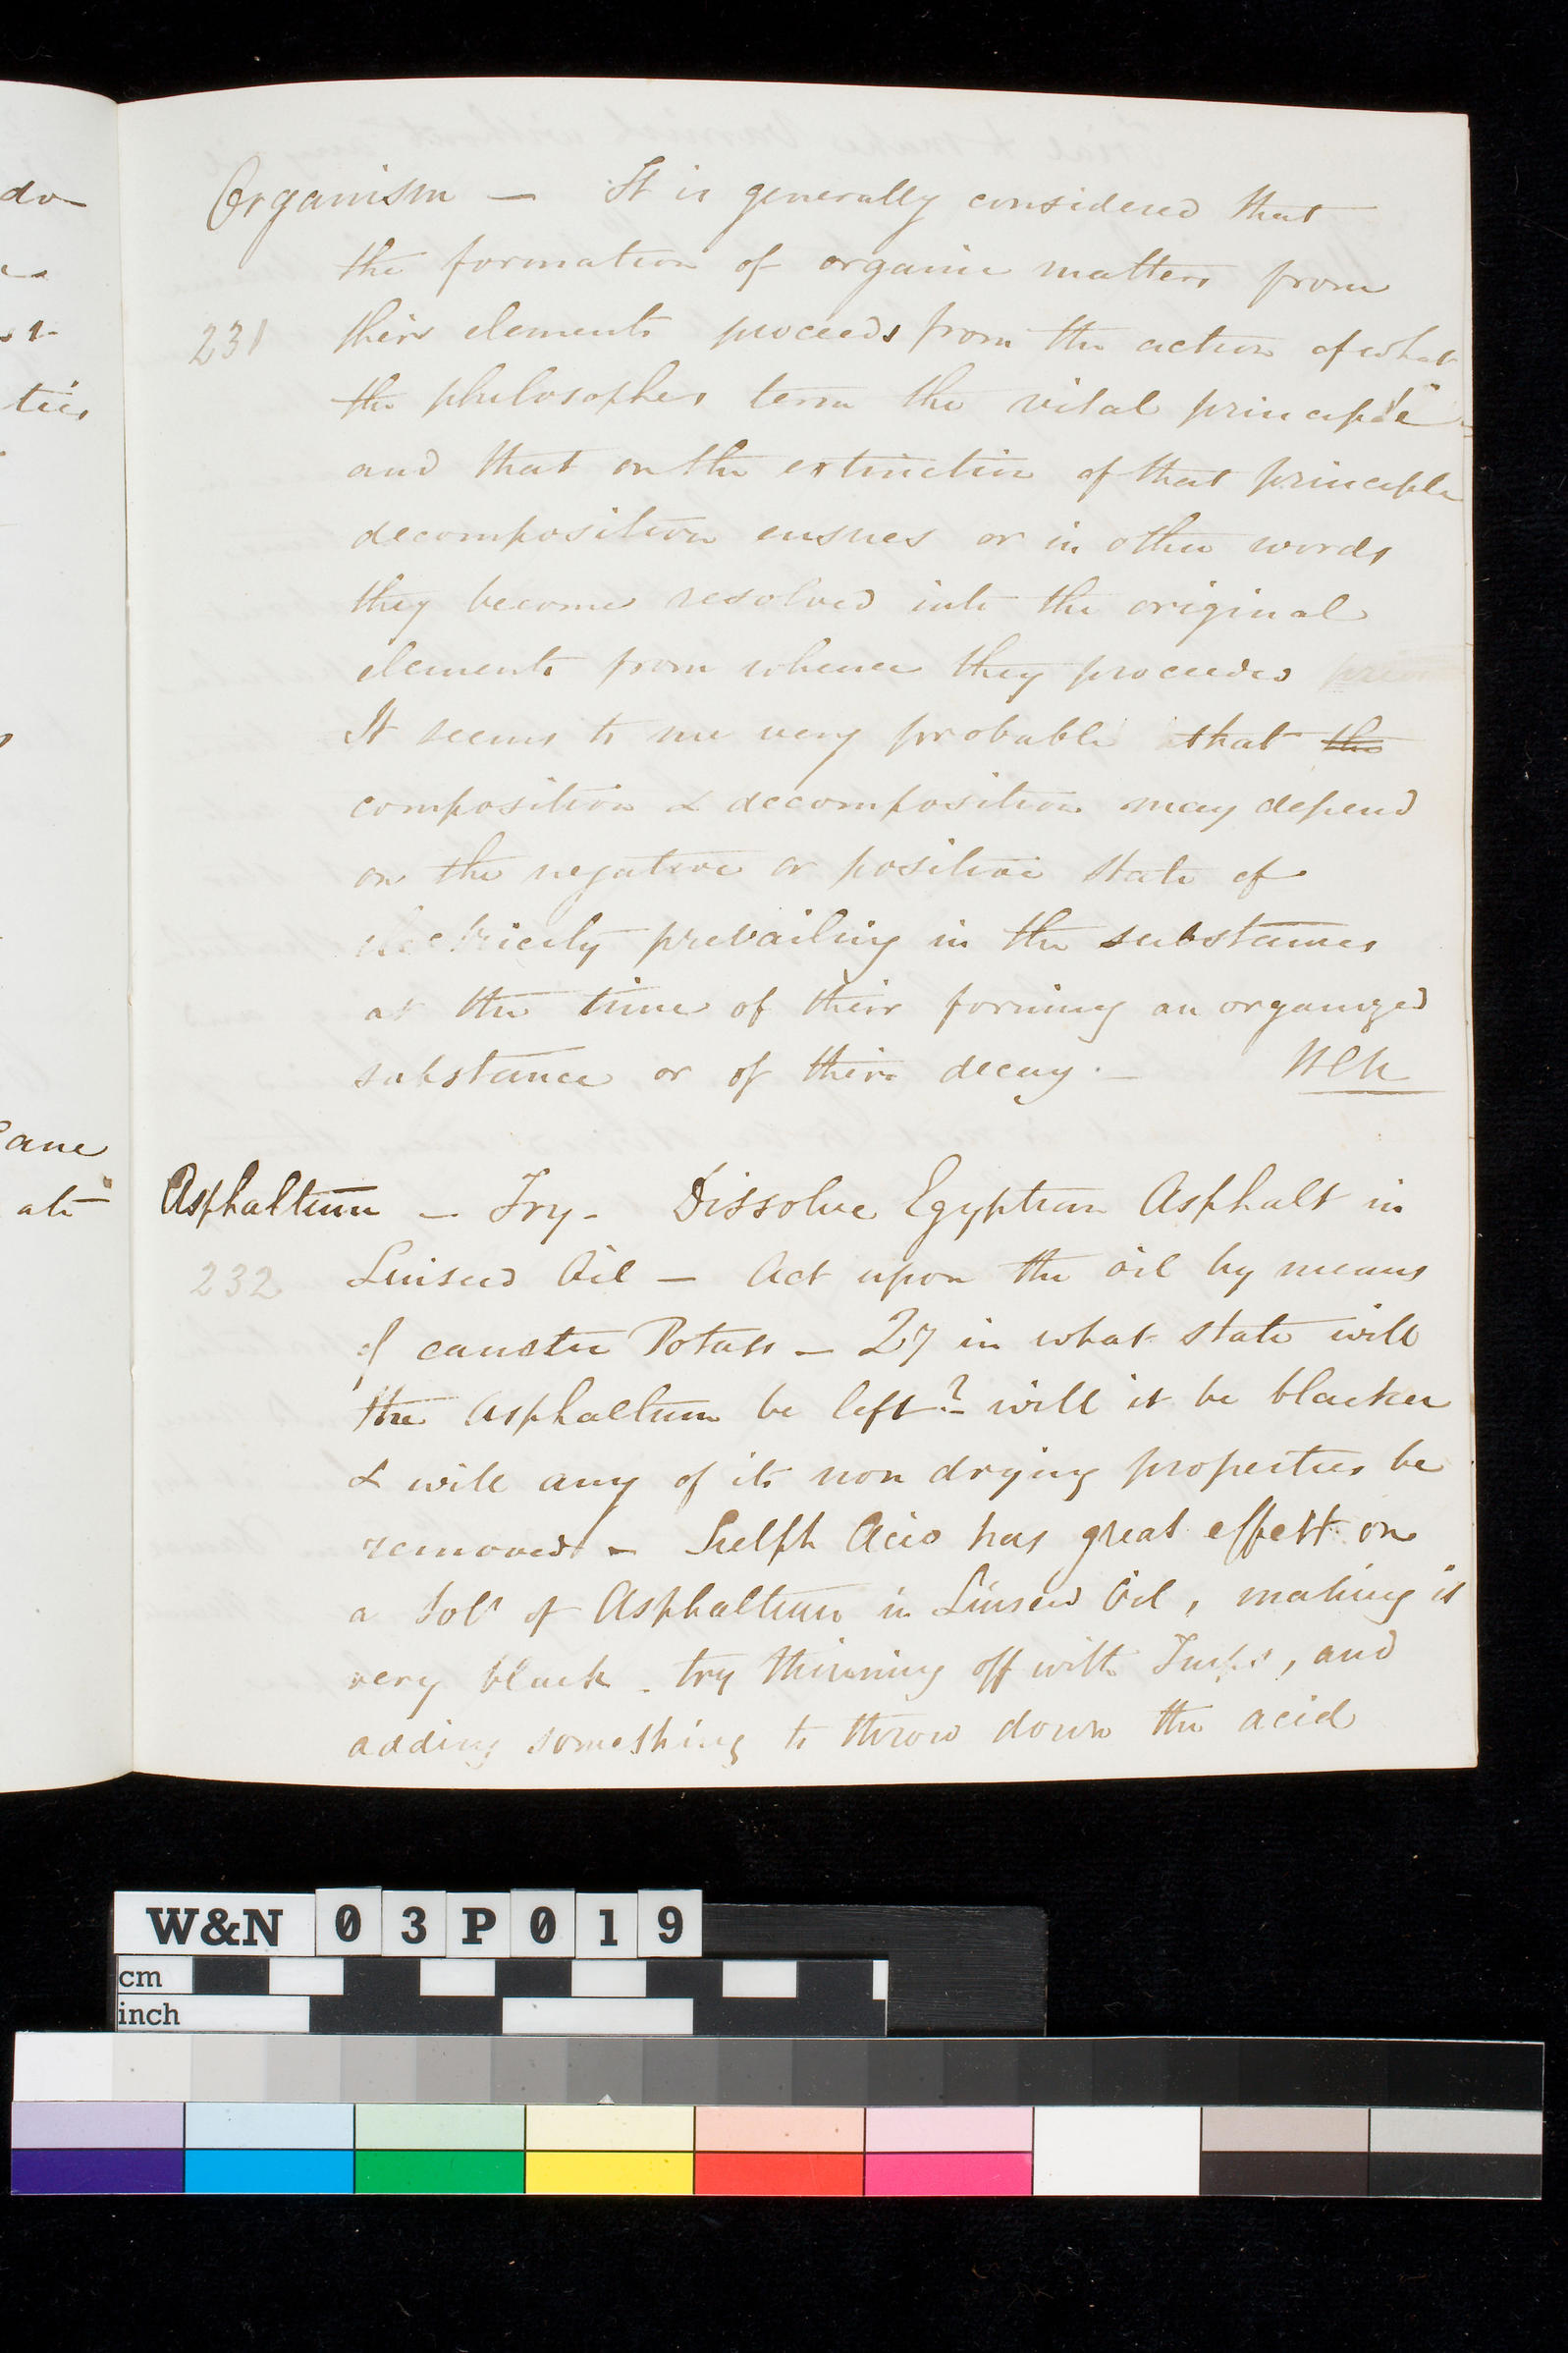 do
ties
ane
ate
Organism — It is generally considered that
the formation of organic matters from
231 their elements proceeds from the action of what
the philosophers term the vital principle
and that on the extinction of that principle
decomposition ensues or in other words
they become resolved into the original
elements from whence they proceeded
It seems to me very probable that the
composition & decomposition may depend
on the negative or positive state of
electricity prevailing in the substances
at the time of their forming an organized
substance or of their decay. —
Asphaltum — Try — Dissolve Egyptian Asphalt in
232 Linseed Oil — Act upon the oil by means
of caustic Potass — in what state will
the Asphaltum be left? will it be blacker
& will any of its non drying properties be
removed — Sulph Acid has great effect on
a Solⁿ of Asphaltum in Linseed Oil, making it
very black — try thinning off with Turps, and
adding something to throw down the acid
W&N 03P019
cm
inch